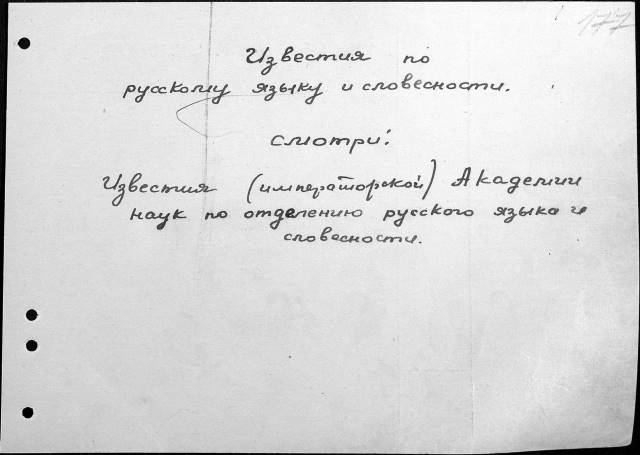 177
Известия по
русскому языку и словесности.
смотри:
Известия (императорской) Академии
наук по отделению русского языка и
словесности.